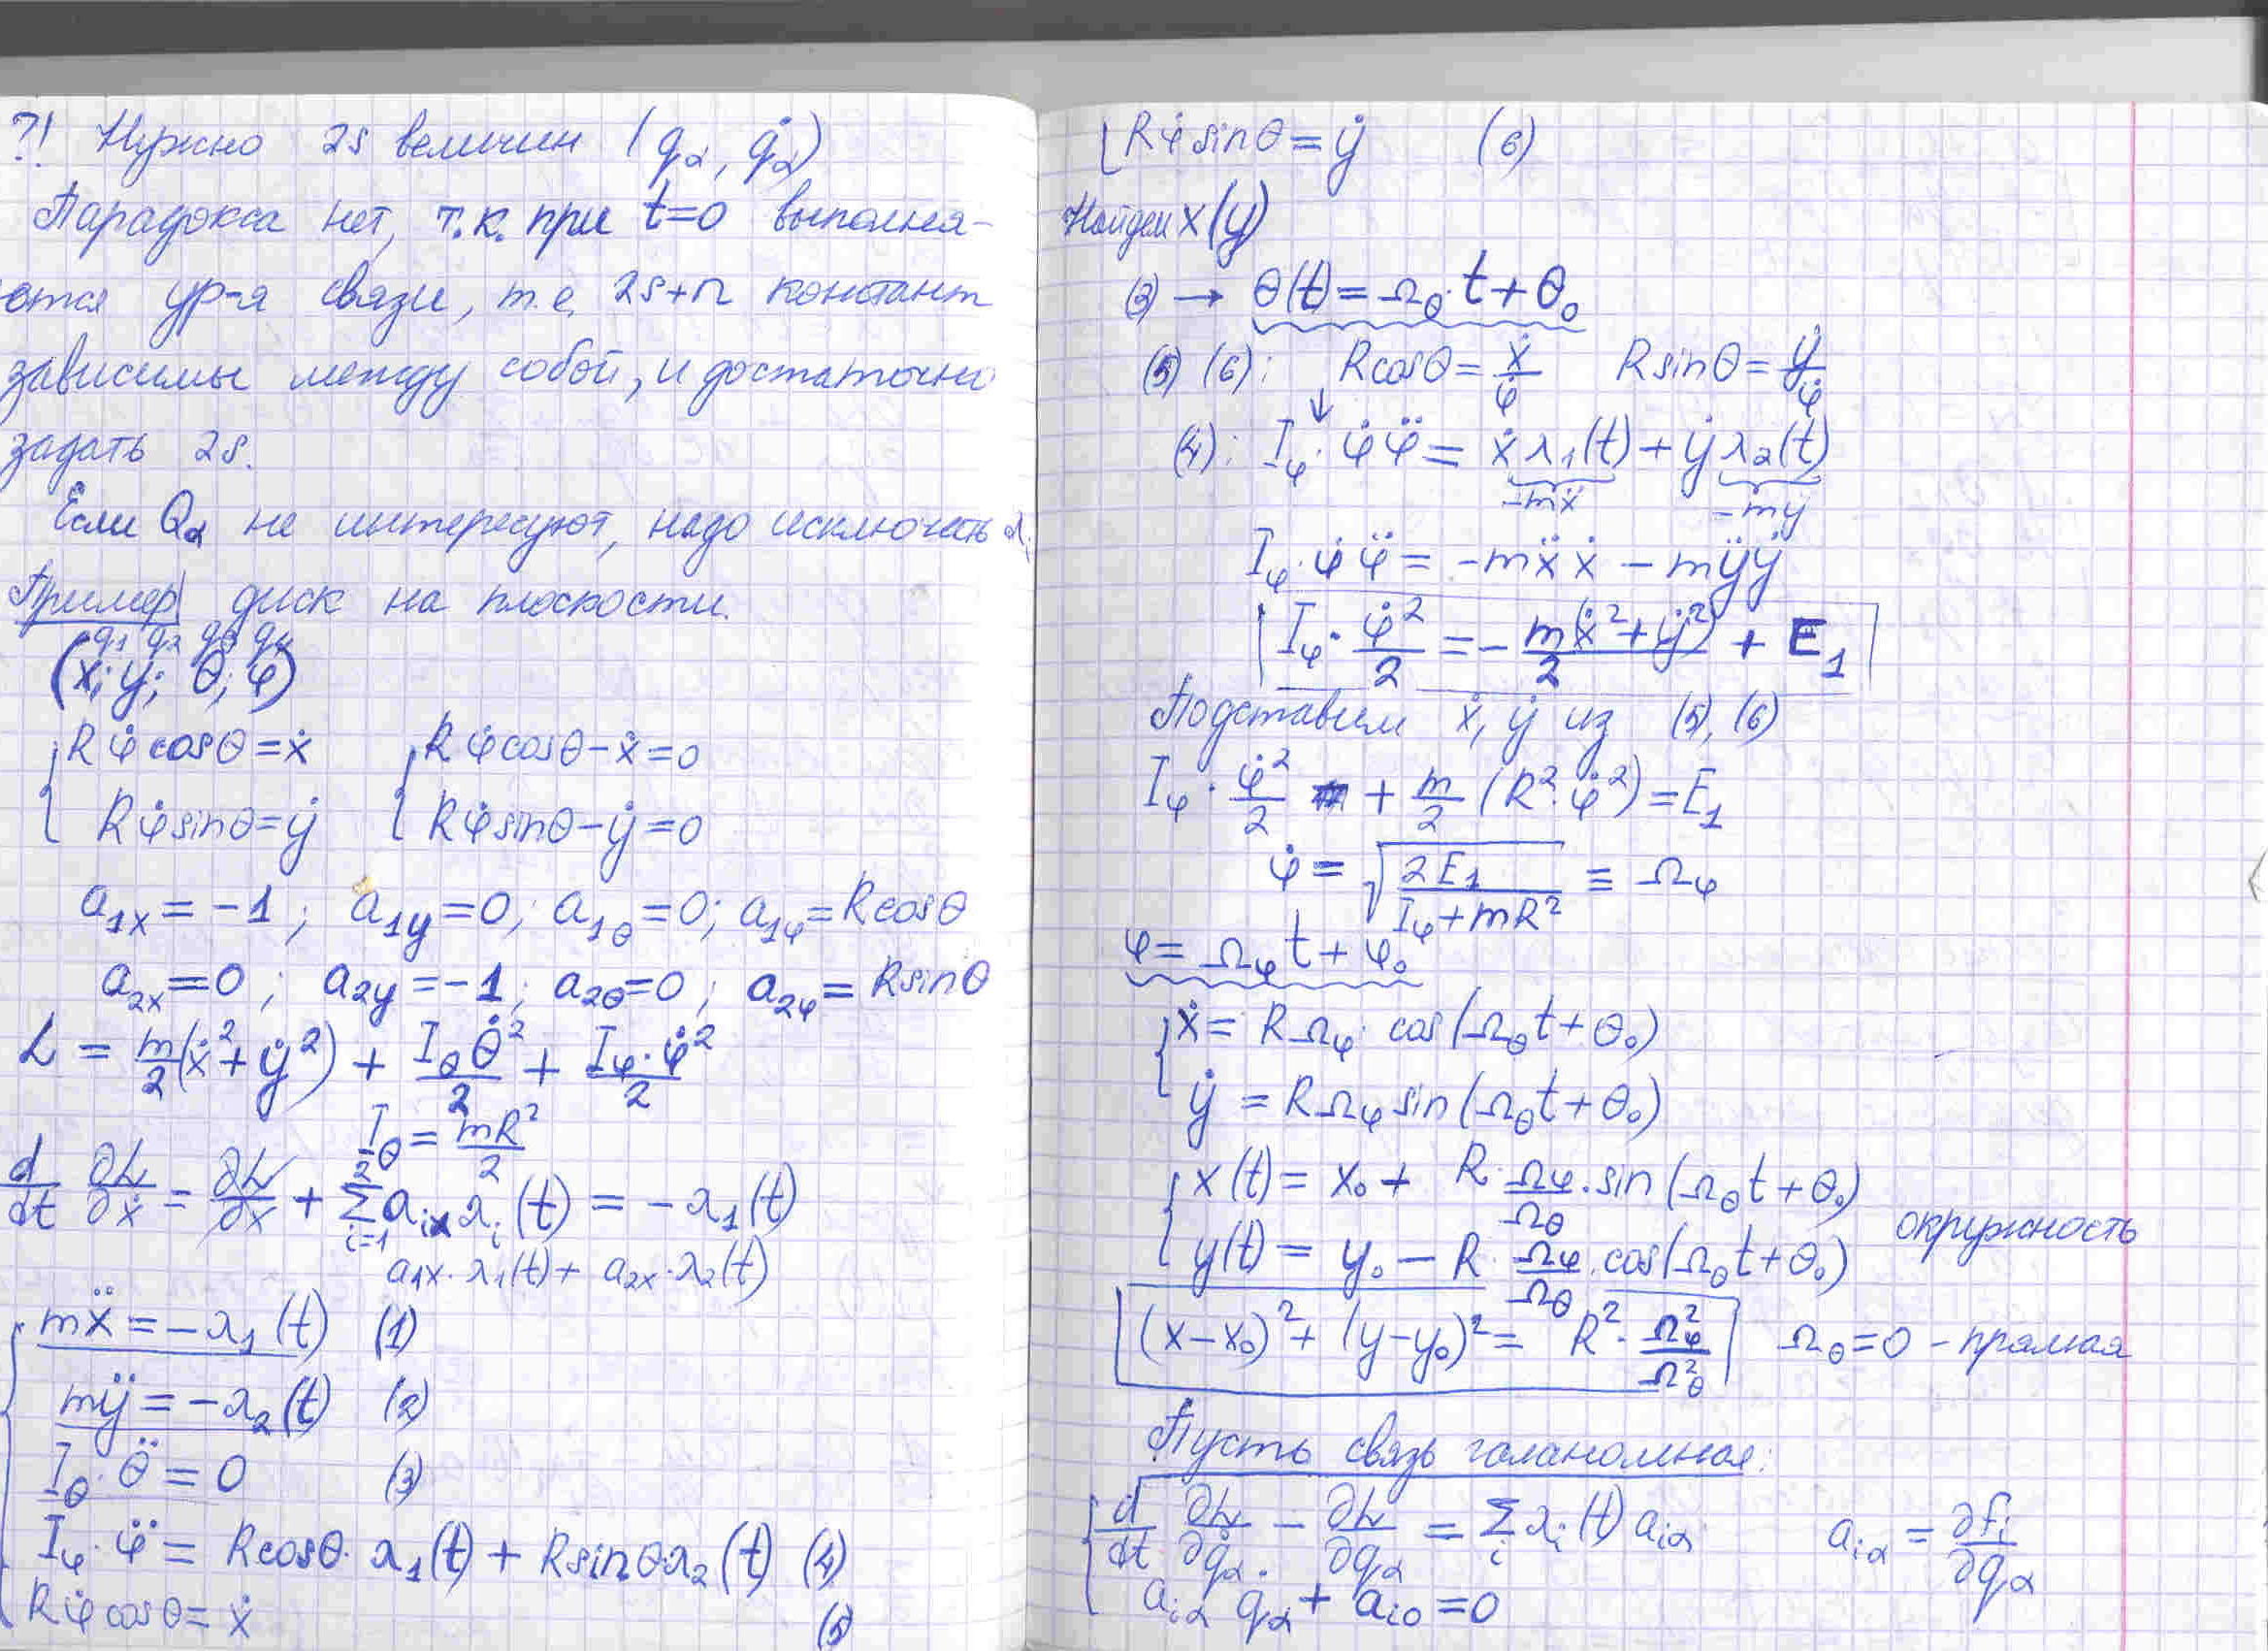 ?! Нужно 2s величин (q_α, q̇_α)
Парадокса нет, т.к. при t=0 выполня-
ются ур-я связи, т.е. 2s+n констант
зависимы между собой, и достаточно
задать 2s.
Если Q_α не интересуют, надо исключать λ_i
Пример| диск на плоскости.
q1 q2 q3 q4
(x; y; θ; φ)
{ Rφ̇cosθ=ẋ { Rφ̇cosθ-ẋ=0
Rφ̇sinθ=ẏ Rφ̇sinθ-ẏ=0
a_1x = -1; a_1y=0; a_1θ=0; a_1φ=Rcosθ
a_2x=0; a_2y=-1; a_2θ=0; a_2φ=Rsinθ
L = m/2(ẋ²+ẏ²) + I_θθ̇²/2 + I_φ·φ̇²/2
I_θ = mR²/2
d/dt ∂L/∂ẋ = ∂L/∂x + Σ_{i=1}^{2} a_ix λ_i(t) = -λ_1(t)
a_1x·λ_1(t) + a_2x·λ_2(t)
{ mẍ = -λ_1(t) (1)
mÿ = -λ_2(t) (2)
I_θ·θ̈ = 0 (3)
I_φ·φ̈ = Rcosθ·λ_1(t) + Rsinθλ_2(t) (4)
Rφ̇cosθ = ẋ (5)
Rφ̇sinθ = ẏ (6)
Найдем x(y)
(3) → θ(t) = Ω_θ·t+θ_0
(5) (6): Rcosθ = ẋ/φ̇ Rsinθ = ẏ/φ̇
↓
(4): I_φ·φ̇φ̈ = ẋλ_1(t) + ẏλ_2(t)
-mẍ -mÿ
I_φ·φ̇φ̈ = -mẍẋ - mÿẏ
I_φ·φ̇²/2 = - m(ẋ²+ẏ²)/2 + E_1
Подставим ẋ, ẏ из (5), (6)
I_φ·φ̇²/2 + m/2(R²·φ̇²) = E_1
φ̇ = √(2E_1/(I_φ+mR²)) ≡ Ω_φ
φ = Ω_φt + φ_0
{ ẋ = RΩ_φ·cos(Ω_θt+θ_0)
ẏ = RΩ_φ sin(Ω_θt+θ_0)
{ x(t) = x_0 + R·Ω_φ/Ω_θ·sin(Ω_θt+θ_0)
окружность
y(t) = y_0 - R·Ω_φ/Ω_θ·cos(Ω_θt+θ_0)
(x-x_0)² + (y-y_0)² = R²·Ω_φ²/Ω_θ² Ω_θ=0 - прямая
Пусть связь голономная:
{ d/dt ∂L/∂q̇_α - ∂L/∂q_α = Σ_i λ_i(t) a_iα a_iα = ∂f_i/∂q_α
a_iα q̇_α + a_i0 = 0